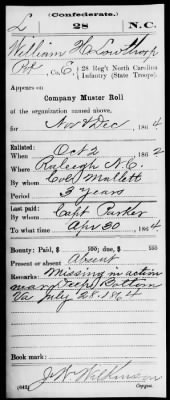 (Confederate.)
L 28 N.C.
William H. Lowthrop
Pvt, Co. E, 28 Reg't North Carolina
Infantry (State Troops)
Appears on
Company Muster Roll
of the organization named above,
for Nov & Dec, 1864
Enlisted:
When Oct 2, 1862
Where Raleigh N.C.
By whom Col. Mallett
Period 3 years
Last paid:
By whom Capt Parker
To what time Apr 30, 1864
Bounty: Paid, $ 100; due, $ 100
Present or absent Absent
Remarks: Missing in action
near Deep Bottom
Va July 28. 1864
Book mark:
J. W. Wilkinson
(642) Copyist.